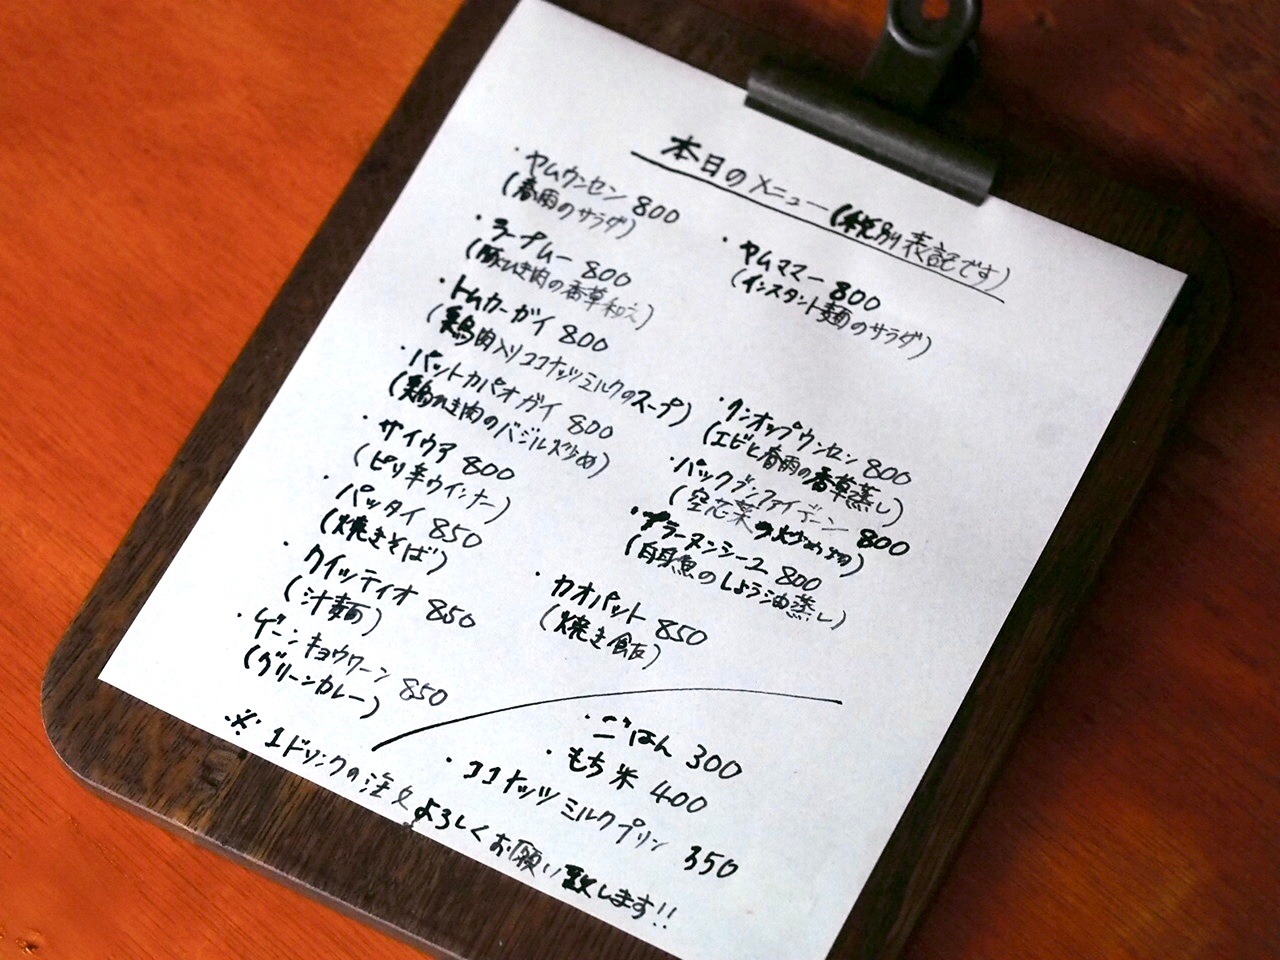 本日のメニュー(税別表記です)
・ヤムウンセン 800
(春雨のサラダ)
・ラープムー 800
(豚ひき肉の香草和え)
・トムカーガイ 800
(鶏肉入りココナッツミルクのスープ)
・パットカパオガイ 800
(鶏ひき肉のバジル炒め)
・サイウア 800
(ピリ辛ウインナー)
・パッタイ 850
(焼きそば)
・クイッティオ 850
(汁麺)
・ゲーンキョウワーン 850
(グリーンカレー)
・ヤムママー 800
(インスタント麺のサラダ)
・クンオップウンセン 800
(エビと春雨の香草蒸し)
・パックブンファイデーン 800
(空芯菜の炒め物)
・プラーヌンシーユ 800
(白身魚のしょう油蒸し)
・カオパット 850
(焼き飯)
・ごはん 300
・もち米 400
・ココナッツミルクプリン 350
※1ドリンクの注文よろしくお願い致します!!